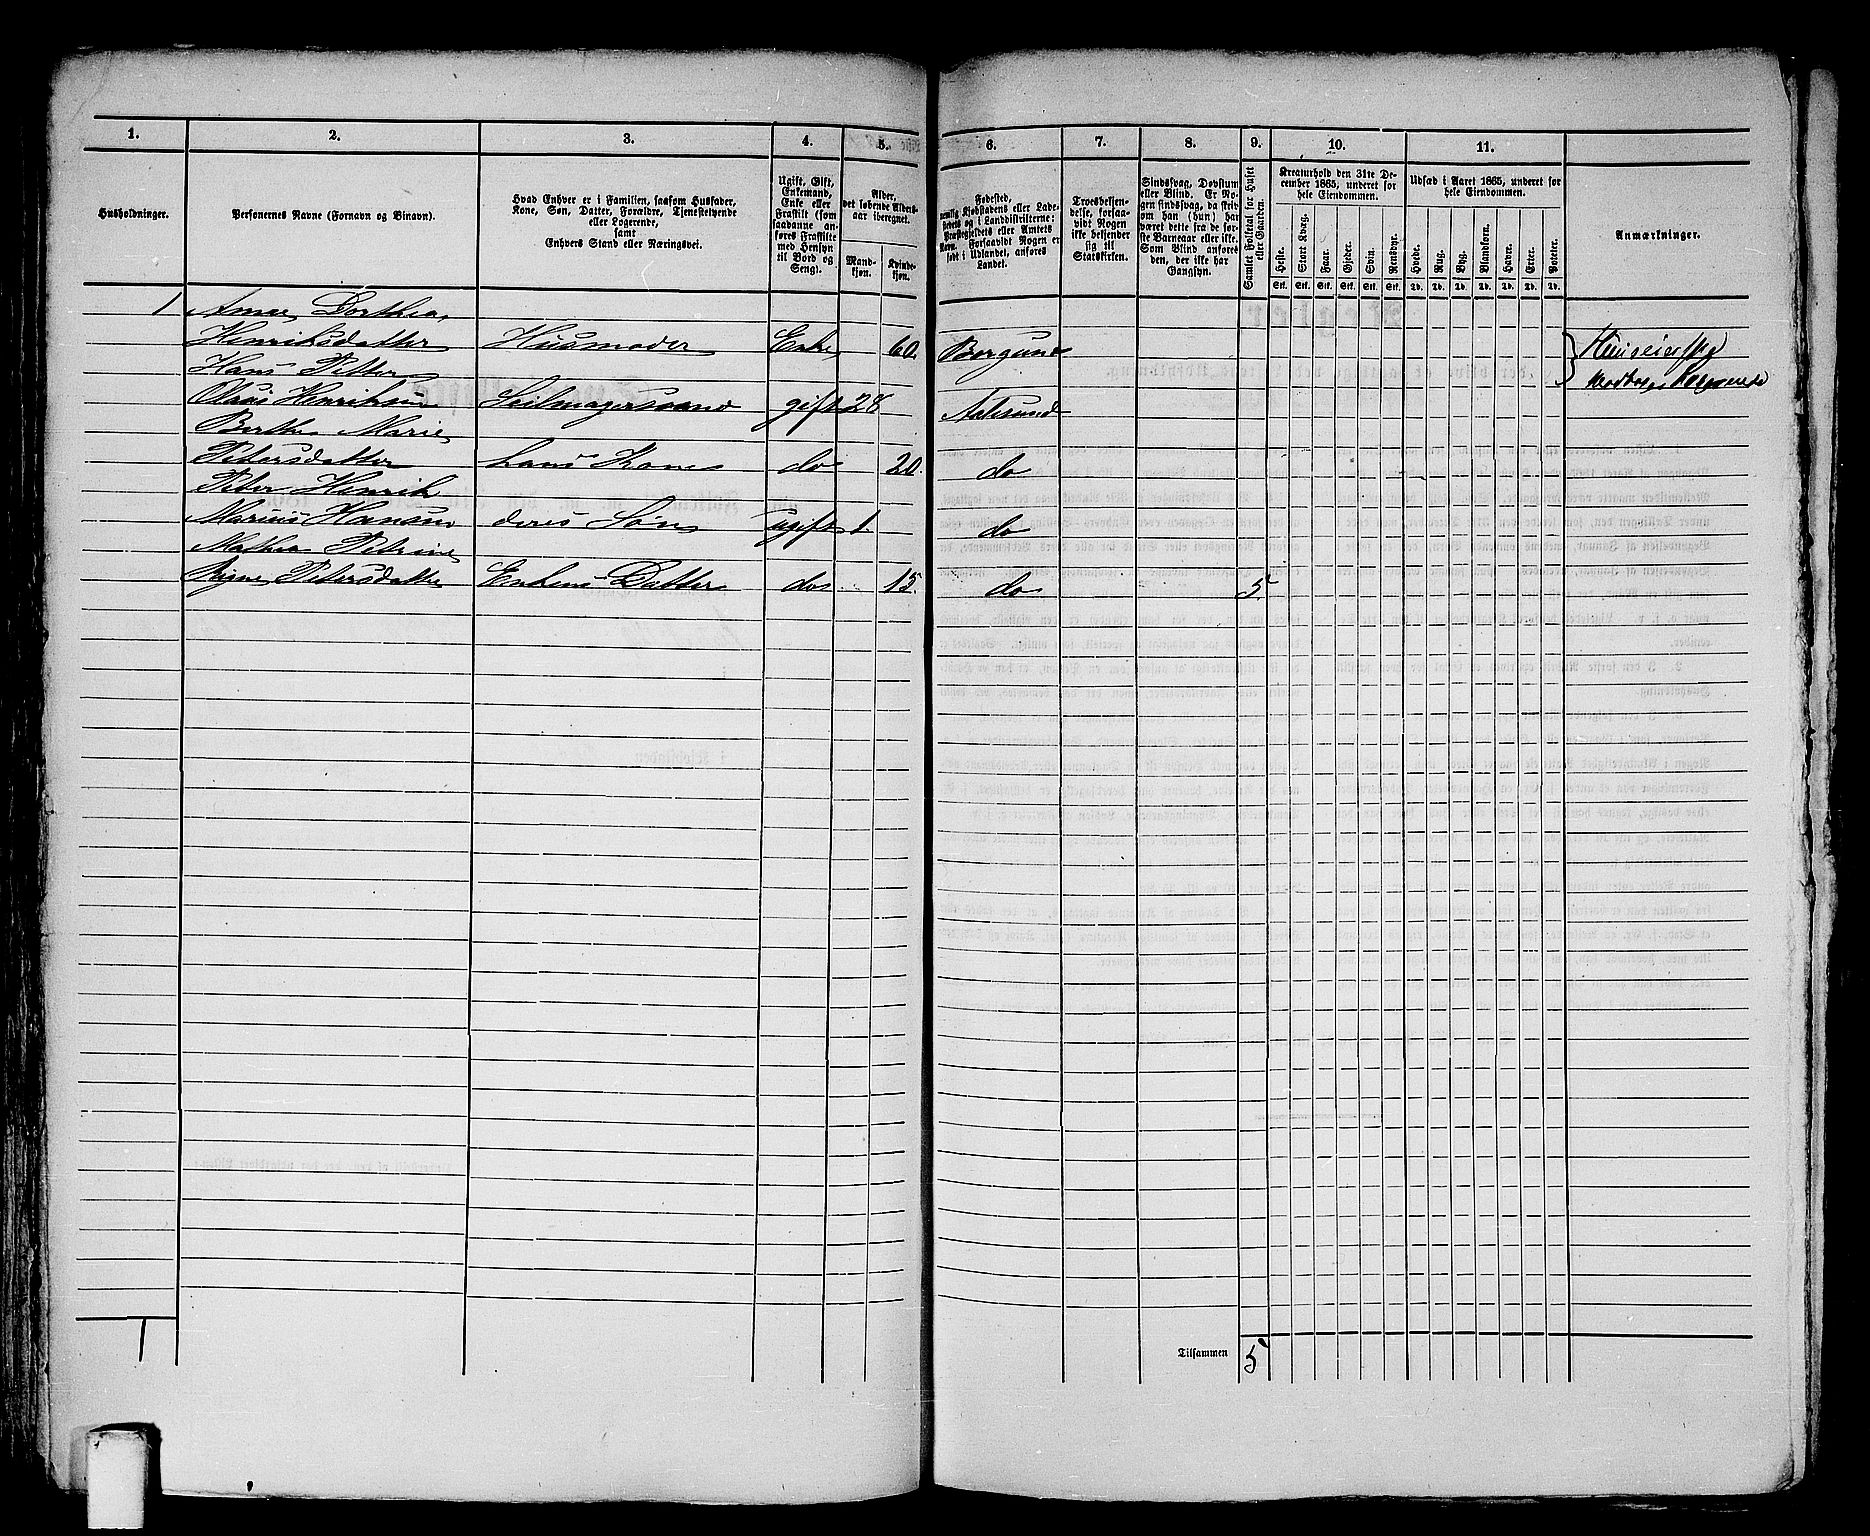 1. 2. 3. 4. 5. 6. 7. 8. 9. 10. 11.
Husholdninger.
Personernes Navne (Fornavn og Binavn).
Hvad Enhver er i Familien, saasom Husfader,
Kone, Søn, Datter, Forældre, Tjenestetyende
eller Logerende,
samt
Enhvers Stand eller Næringsvei.
Ugift, Gift,
Enkemand,
Enke eller
Fraskilt (som
saadanne an-
føres Fraskilte
med Hensyn
til Bord og
Seng).
Alder,
det løbende Alders-
aar iberegnet.
Mand-
kjøn.
Kvinde-
kjøn.
Fødested,
nemlig Kjøbstadens eller Lade-
stedets og i Landdistrikterne:
Præstegjeldets eller Amtets
Navn. Forsaavidt Nogen er
født i Udlandet, anføres
Landet.
Troesbekjen-
delse, forsaa-
vidt Nogen
ikke bekjender
sig til
Statskirken.
Sindssvag, Døvstum
eller Blind. Er No-
gen sindssvag, da skri-
ves om han (hun) har
været dette fra de før-
ste Barneaar eller ikke.
Som Blind anføres
den, der ikke har
Gangsyn.
Samlet Folketal for Huset
eller Gaarden.
Kreaturhold den 31te De-
cember 1865, underet for
hele Eiendommen.
Heste. Stort Kvæg. Faar. Gjeder. Svin. Rensdyr.
Stk. Stk. Stk. Stk. Stk. Stk.
Udsæd i Aaret 1865, underet for
hele Eiendommen.
Hvede. Rug. Byg. Blandkorn. Havre. Erter. Poteter.
Td. Td. Td. Td. Td. Td. Td.
Anmærkninger.
1 Anne Dorthea
Henriksdatter Husmoder Enke 60. Borgund
Hans Petter
Olaus Henriksen Seilmagersvend gift 28 Aalesund
Berthe Marie
Petersdatter hans Kone do 20. do
Peter Henrik
Marius Hansen deres Søn ugift 1 do
Mathea Petrine
Signe Petersdatter Enkens Datter do 15. do 5.
Huuseierske
1
Tilsammen 5